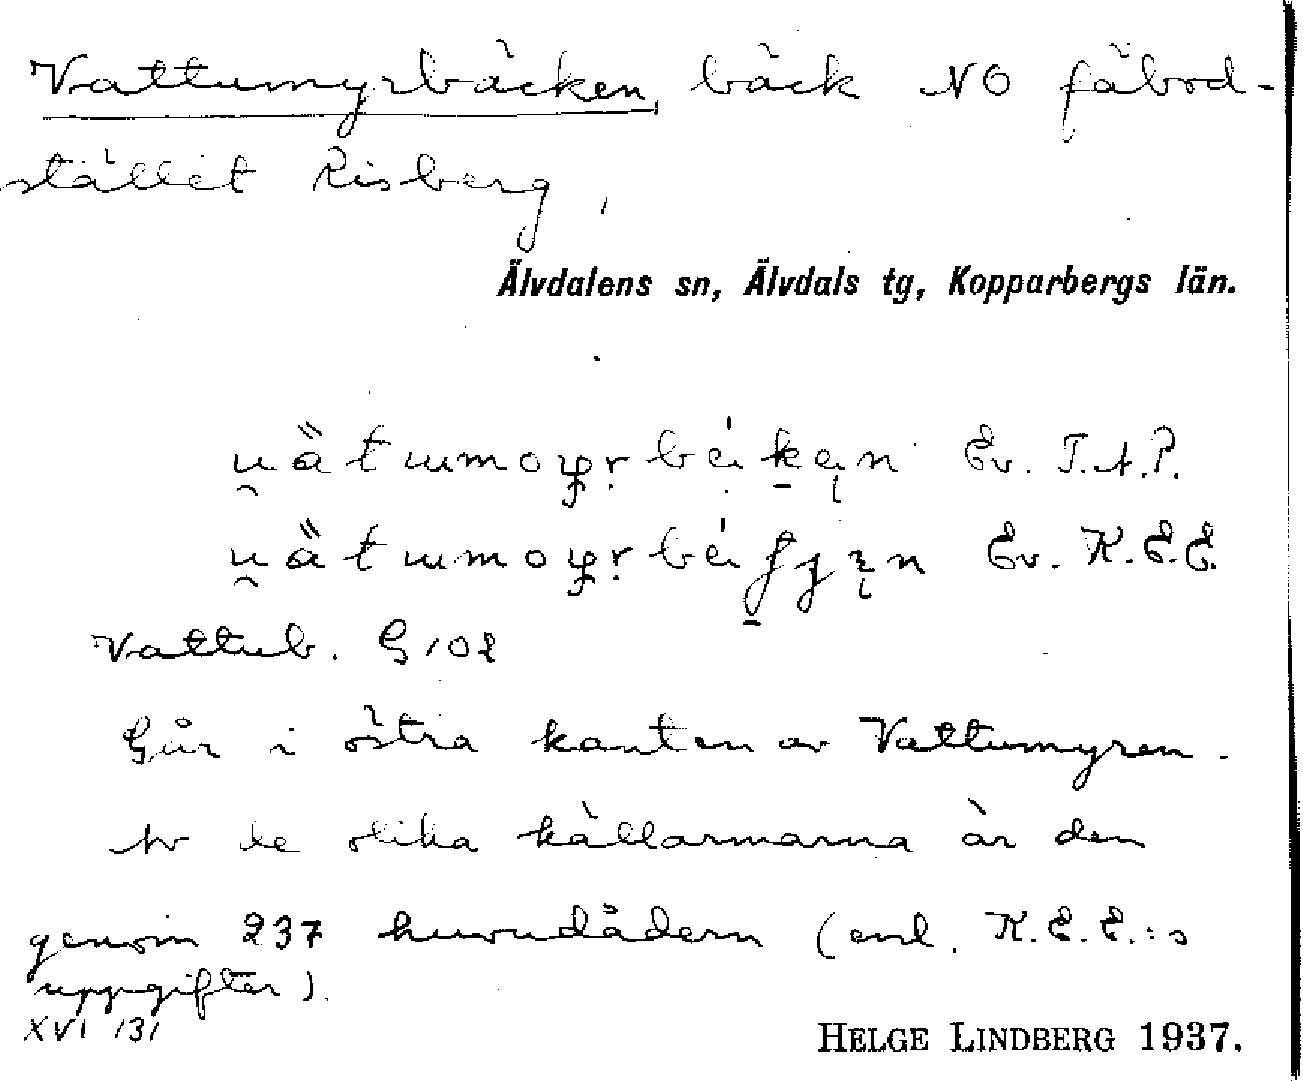 Vattumyrbäcken, bäck NO fäbod-
stället Risberg,
Älvdalens sn, Älvdals tg, Kopparbergs län.
Ev. T.A.P.
Ev. K.E.E.
Vattub. G 102
Går i östra kanten av Vattumyren.
Av de olika källarmarna är den
genom 237 huvudådern (enl. K.E.E.:s
uppgifter).
XVI 131
HELGE LINDBERG 1937.